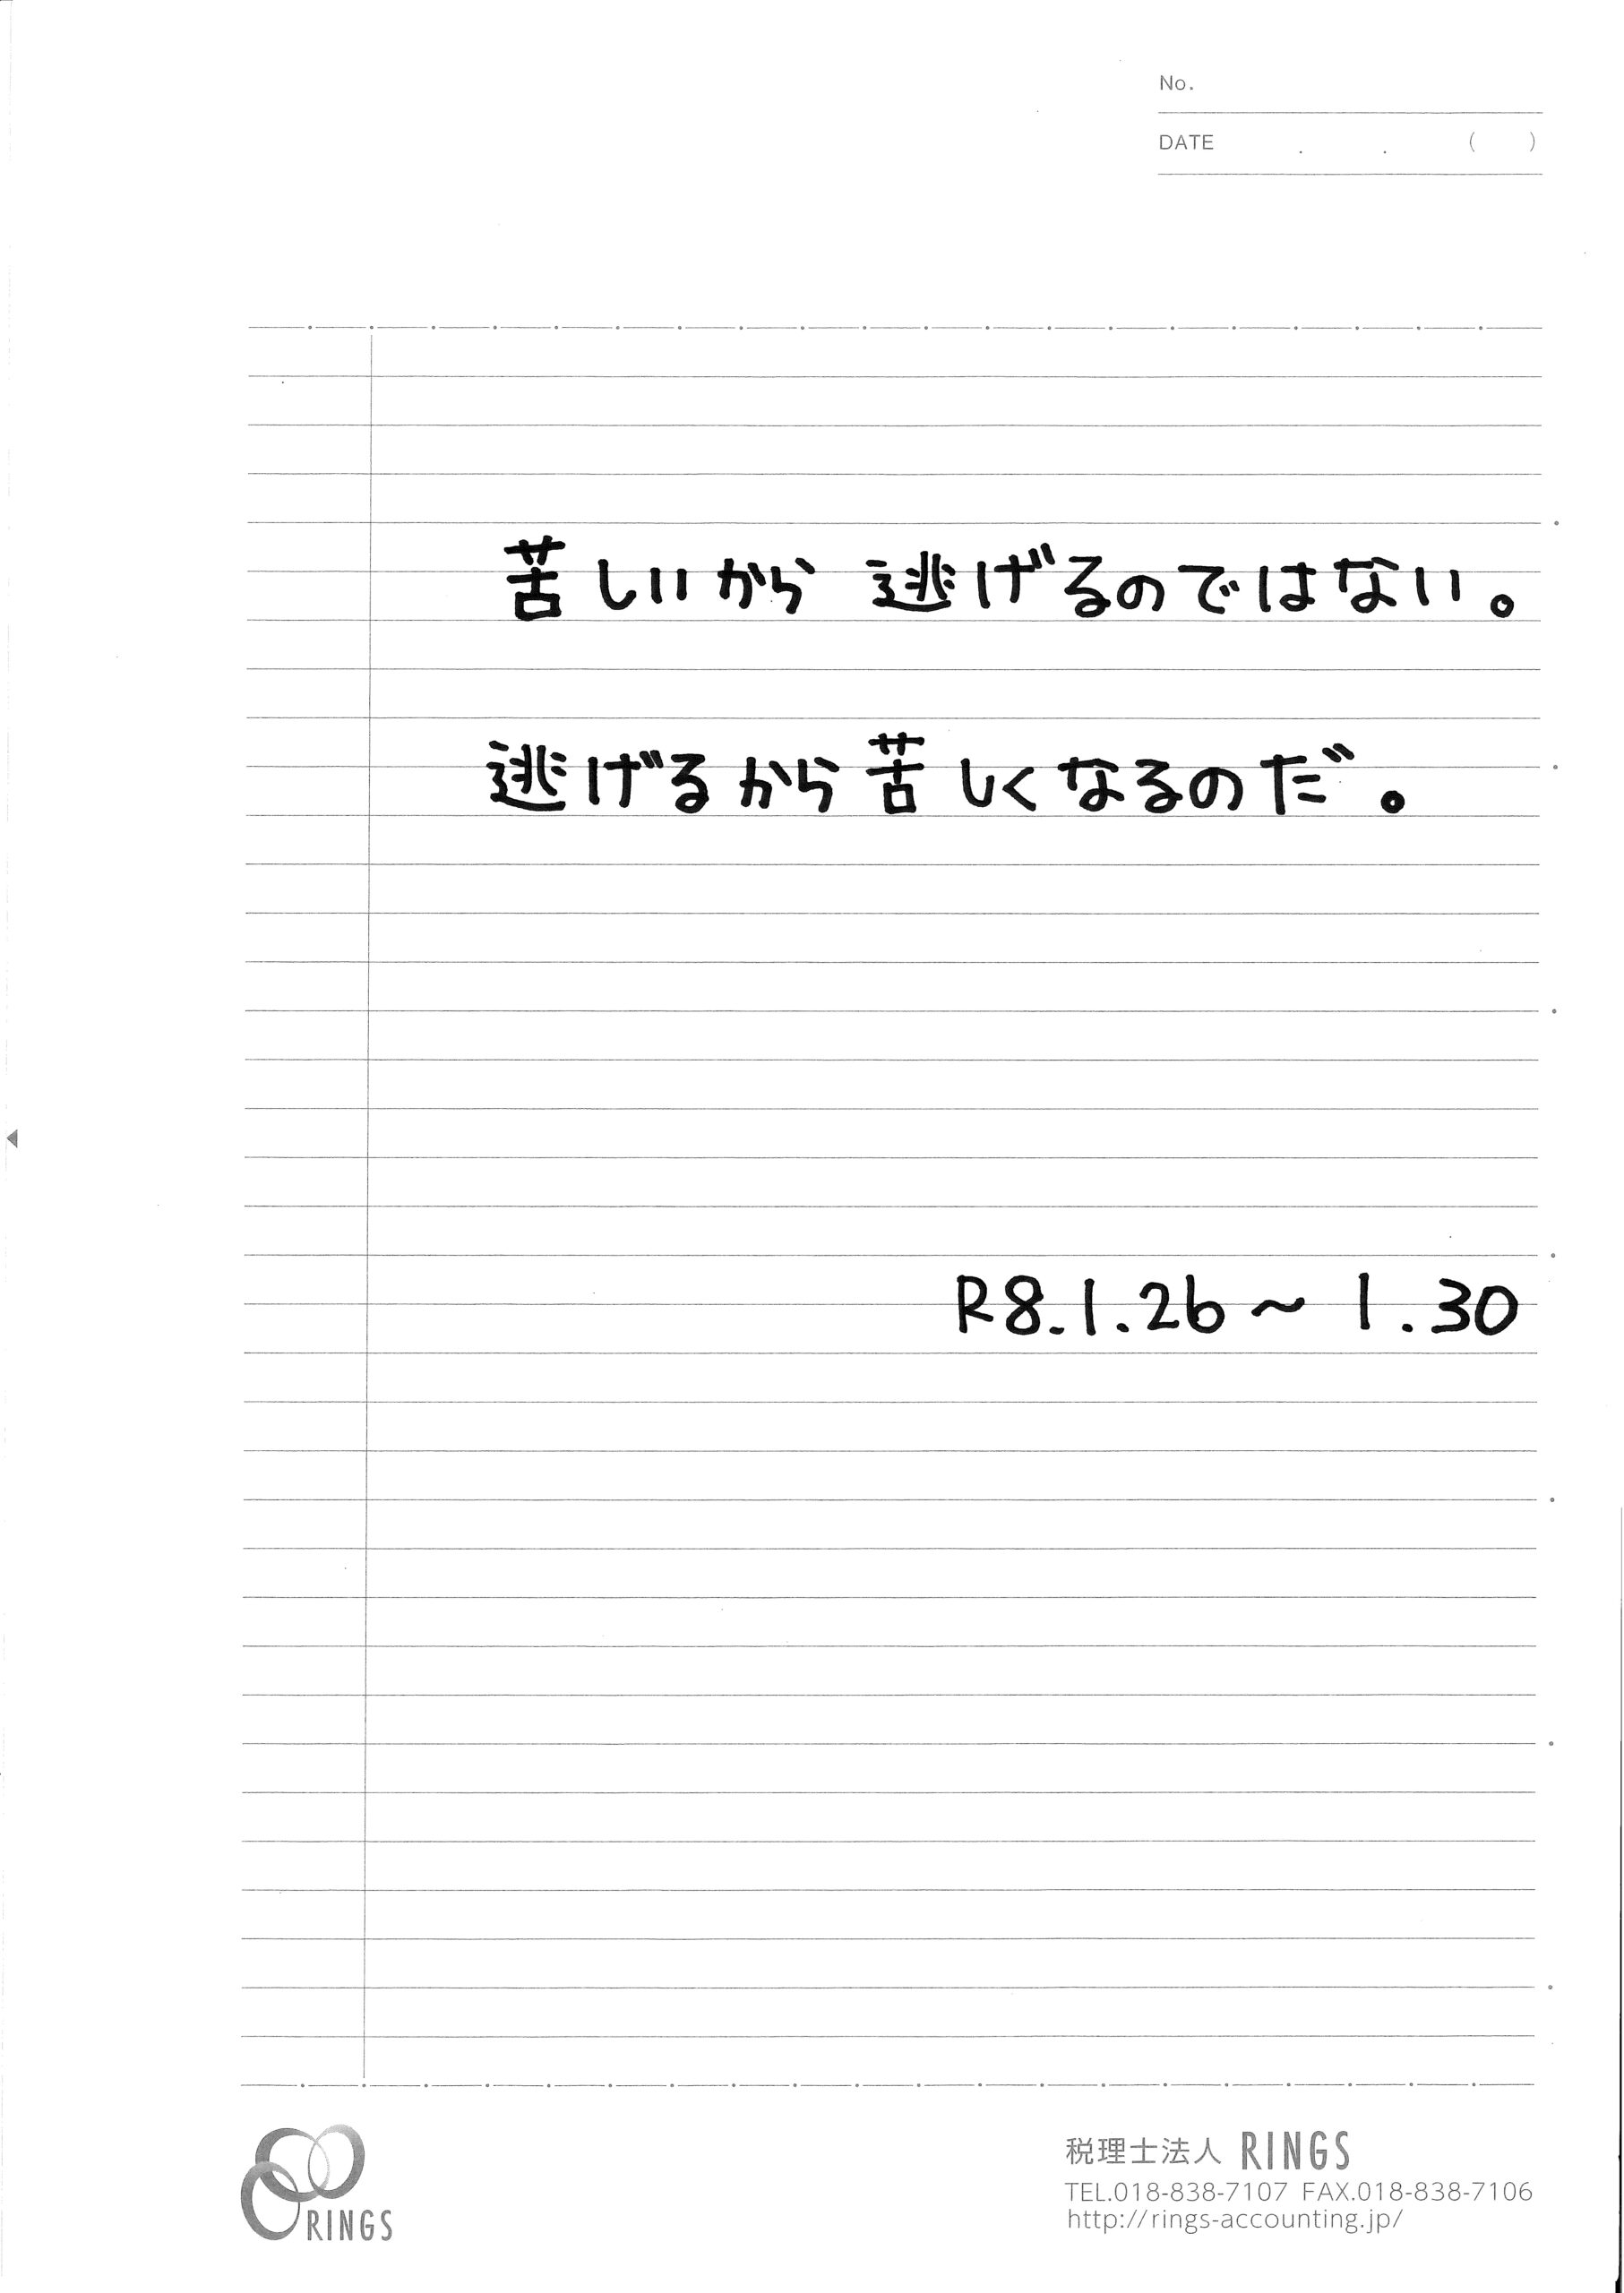 No.
DATE . . ( )
苦しいから 逃げるのではない。
逃げるから苦しくなるのだ。
R8.1.26~1.30
RINGS
税理士法人 RINGS
TEL.018-838-7107 FAX.018-838-7106
http://rings-accounting.jp/